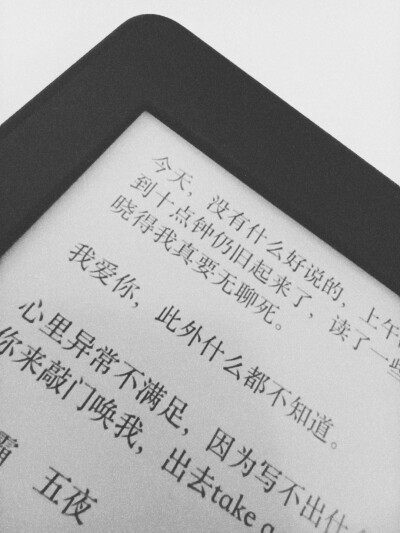 今天，没有什么好说的，上午
到十点钟仍旧起来了，读了一些
晓得我真要无聊死。
我爱你，此外什么都不知道。
心里异常不满足，因为写不出什
你来敲门唤我，出去take a
霜 五夜